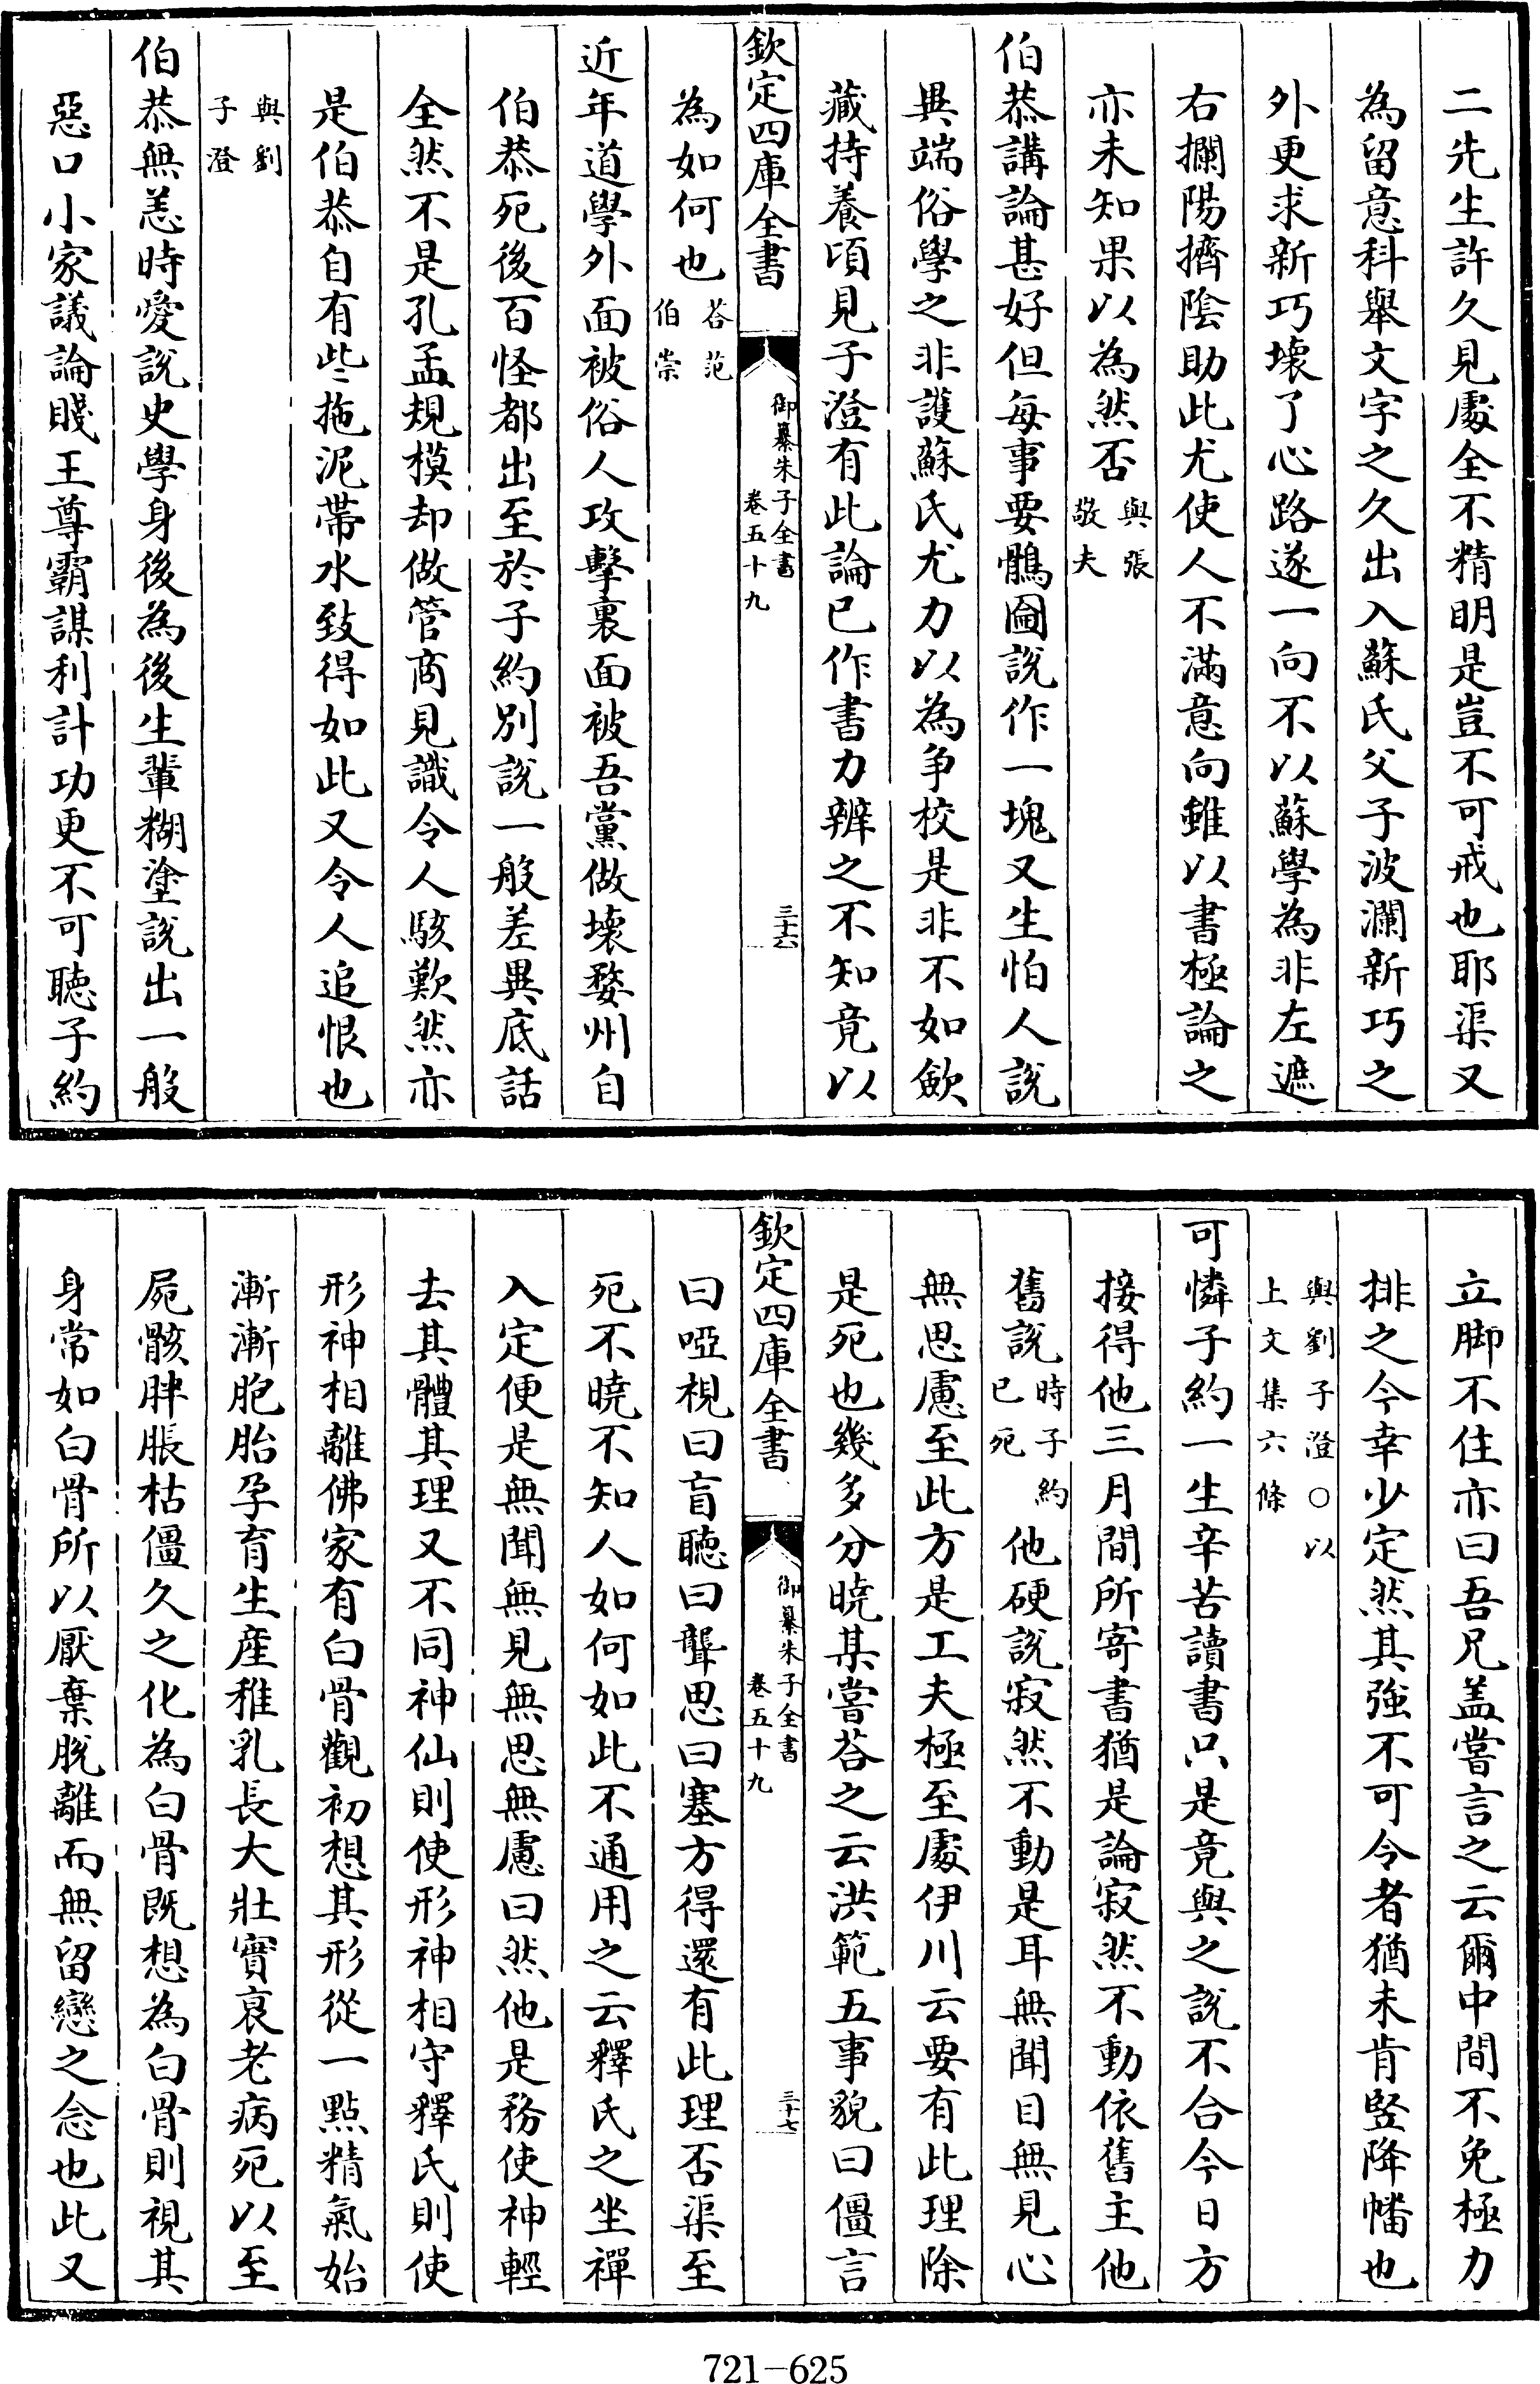 二先生許久見處全不精明是豈不可戒也耶渠又
為留意科舉文字之久出入蘇氏父子波瀾新巧之
外更求新巧壞了心路遂一向不以蘇學為非左遮
右攔陽擠陰助此尤使人不滿意向雖以書極論之
亦未知果以為然否與張敬夫
伯恭講論甚好但每事要鶻圇說作一塊又生怕人說
異端俗學之非護蘇氏尤力以為争校是非不如歛
藏持養頃見子澄有此論已作書力辨之不知竟以
欽定四庫全書
御纂朱子全書
卷五十九
三十六
為如何也荅范伯崇
近年道學外面被俗人攻擊裏面被吾黨做壞婺州自
伯恭死後百怪都出至於子約別說一般差異底話
全然不是孔孟規模却做管商見識令人駭歎然亦
是伯恭自有些拖泥帶水致得如此又令人追恨也
與劉子澄
伯恭無恙時愛說史學身後為後生輩糊塗說出一般
惡口小家議論賤王尊霸謀利計功更不可聽子約
立脚不住亦曰吾兄盖嘗言之云爾中間不免極力
排之今幸少定然其強不可令者猶未肯竪降幡也
與劉子澄○以上文集六條
可憐子約一生辛苦讀書只是竟與之說不合今日方
接得他三月間所寄書猶是論寂然不動依舊主他
舊說時子約已死他硬說寂然不動是耳無聞目無見心
無思慮至此方是工夫極至處伊川云要有此理除
是死也幾多分曉某嘗荅之云洪範五事貌曰僵言
欽定四庫全書
御纂朱子全書
卷五十九
三十七
曰啞視曰盲聽曰聾思曰塞方得還有此理否渠至
死不曉不知人如何如此不通用之云釋氏之坐禪
入定便是無聞無見無思無慮曰然他是務使神輕
去其體其理又不同神仙則使形神相守釋氏則使
形神相離佛家有白骨觀初想其形從一點精氣始
漸漸胞胎孕育生産稚乳長大壯實衰老病死以至
屍骸胖脹枯僵久之化為白骨既想為白骨則視其
身常如白骨所以厭棄脫離而無留戀之念也此又
721-625